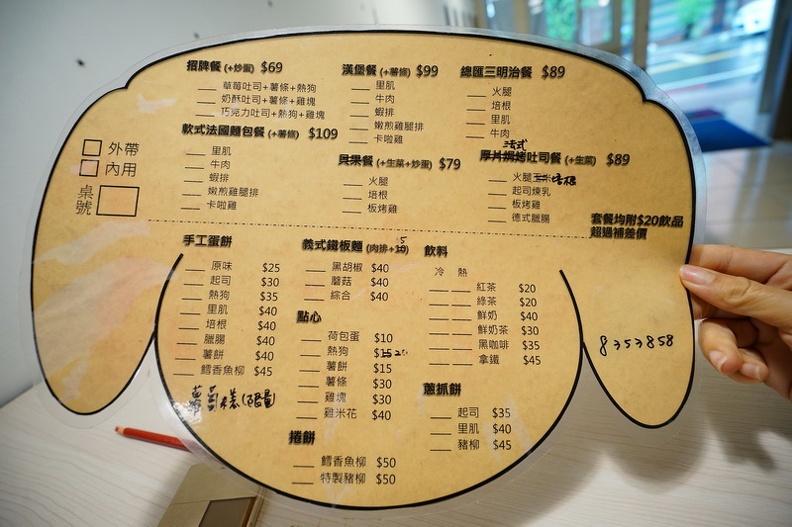 招牌餐 (+炒蛋) $69
草莓吐司+薯條+熱狗
奶酥吐司+薯條+雞塊
巧克力吐司+熱狗+雞塊
漢堡餐 (+薯條) $99
里肌
牛肉
蝦排
嫩煎雞腿排
卡啦雞
總匯三明治餐 $89
火腿
培根
里肌
牛肉
外帶
內用
桌號
軟式法國麵包餐 (+薯條) $109
里肌
牛肉
蝦排
嫩煎雞腿排
卡啦雞
貝果餐 (+生菜+炒蛋) $79
火腿
培根
板烤雞
法式
厚片焗烤吐司餐 (+生菜) $89
火腿 培根
起司煉乳
板烤雞
德式臘腸
套餐均附$20飲品
超過補差價
手工蛋餅
原味 $25
起司 $30
熱狗 $35
里肌 $40
培根 $40
臘腸 $40
薯餅 $40
鱈香魚柳 $45
義式鐵板麵 (肉排+10) 5
黑胡椒 $40
蘑菇 $40
綜合 $40
點心
荷包蛋 $10
熱狗 $15 20
薯餅 $15
薯條 $30
雞塊 $30
雞米花 $40
捲餅
鱈香魚柳 $50
特製豬柳 $50
飲料
冷 熱
紅茶 $20
綠茶 $20
鮮奶 $40
鮮奶茶 $30
黑咖啡 $35
拿鐵 $45
蔥抓餅
起司 $35
里肌 $40
豬柳 $45
8353858